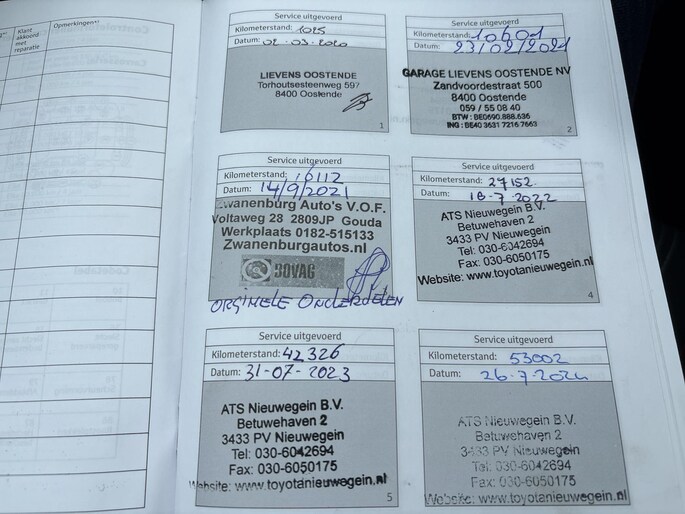 Klant
akkoord
met
reparatie
Opmerkingen*⁾
Service uitgevoerd
Kilometerstand: 1025
Datum: 02-03-2020
LIEVENS OOSTENDE
Torhoutsesteenweg 597
8400 Oostende
1
Service uitgevoerd
Kilometerstand: 10601
Datum: 23/02/2021
GARAGE LIEVENS OOSTENDE NV
Zandvoordestraat 500
8400 Oostende
059 / 55 08 40
BTW : BE0690.888.636
ING : BE40 3631 7216 7663
2
Service uitgevoerd
Kilometerstand: 16112
Datum: 14/9/2021
Zwanenburg Auto's V.O.F.
Voltaweg 28 2809JP Gouda
Werkplaats 0182-515133
Zwanenburgautos.nl
BOVAG
ORGINELE ONDERDELEN
Service uitgevoerd
Kilometerstand: 27152
Datum: 18-7-2022
ATS Nieuwegein B.V.
Betuwehaven 2
3433 PV Nieuwegein
Tel: 030-6042694
Fax: 030-6050175
Website: www.toyotanieuwegein.nl
4
Service uitgevoerd
Kilometerstand: 42326
Datum: 31-07-2023
ATS Nieuwegein B.V.
Betuwehaven 2
3433 PV Nieuwegein
Tel: 030-6042694
Fax: 030-6050175
Website: www.toyotanieuwegein.nl
5
Service uitgevoerd
Kilometerstand: 53002
Datum: 26-7-2024
ATS Nieuwegein B.V.
Betuwehaven 2
3433 PV Nieuwegein
Tel: 030-6042694
Fax: 030-6050175
Website: www.toyotanieuwegein.nl